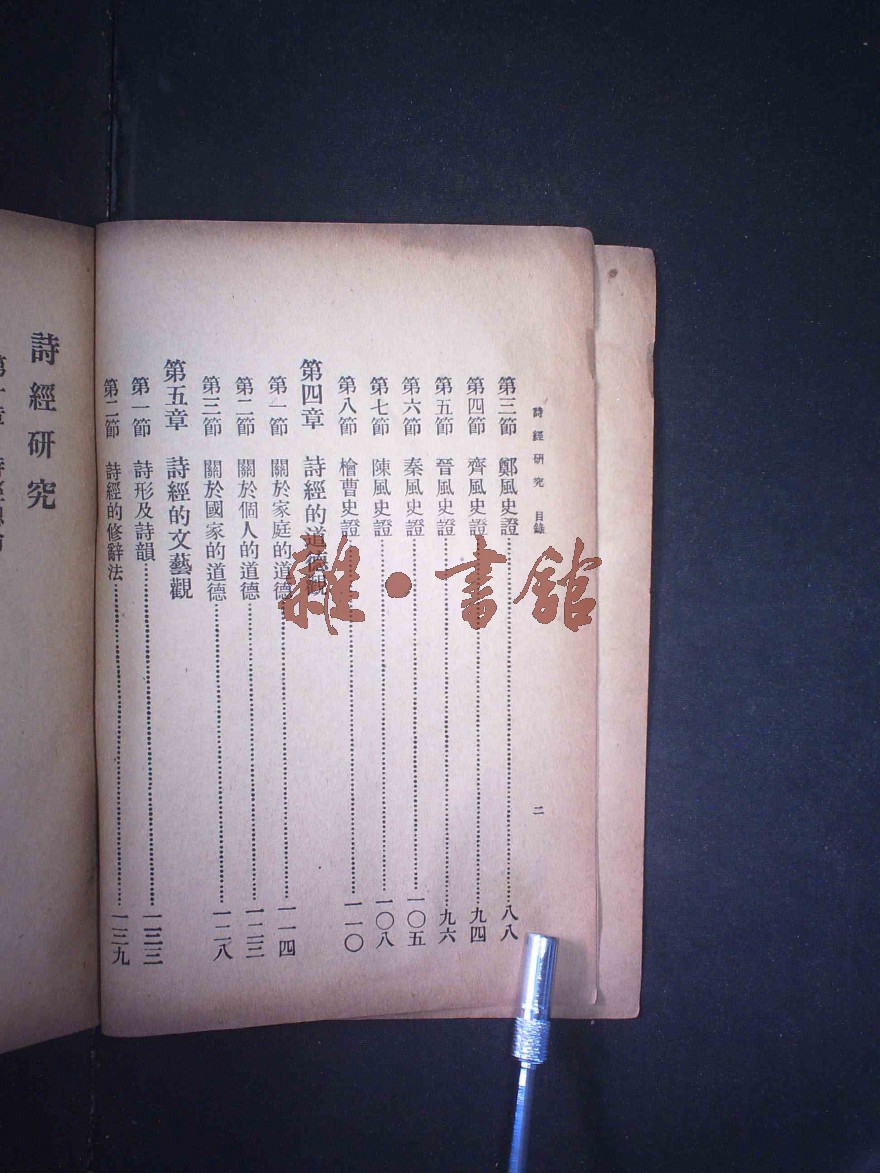 詩經研究 目錄 二
第三節 鄭風史證 八八
第四節 齊風史證 九四
第五節 晉風史證 九六
第六節 秦風史證 一〇五
第七節 陳風史證 一〇八
第八節 檜曹史證 一一〇
第四章 詩經的道德觀
第一節 關於家庭的道德 一一四
第二節 關於個人的道德 一二三
第三節 關於國家的道德 一二八
第五章 詩經的文藝觀
第一節 詩形及詩韻 一三三
第二節 詩經的修辭法 一三九
詩經研究
雜·書館